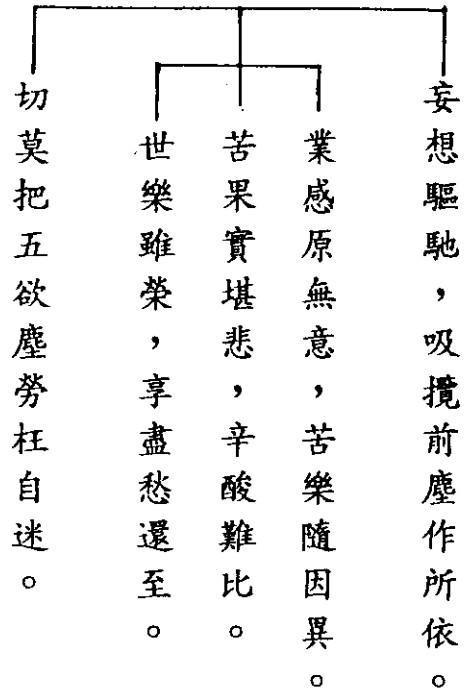 妄想驅馳，吸攬前塵作所依。
業感原無意，苦樂隨因異。
苦果實堪悲，辛酸難比。
世樂雖榮，享盡愁還至。
切莫把五欲塵勞枉自迷。